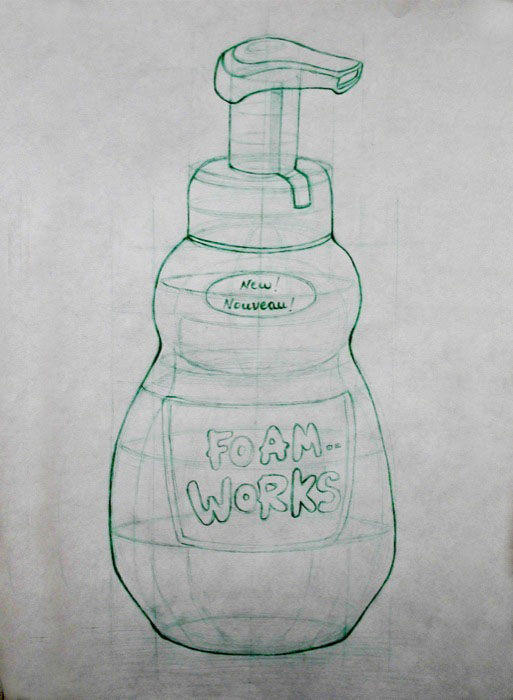 New!
Nouveau!
FOAM..
WORKS